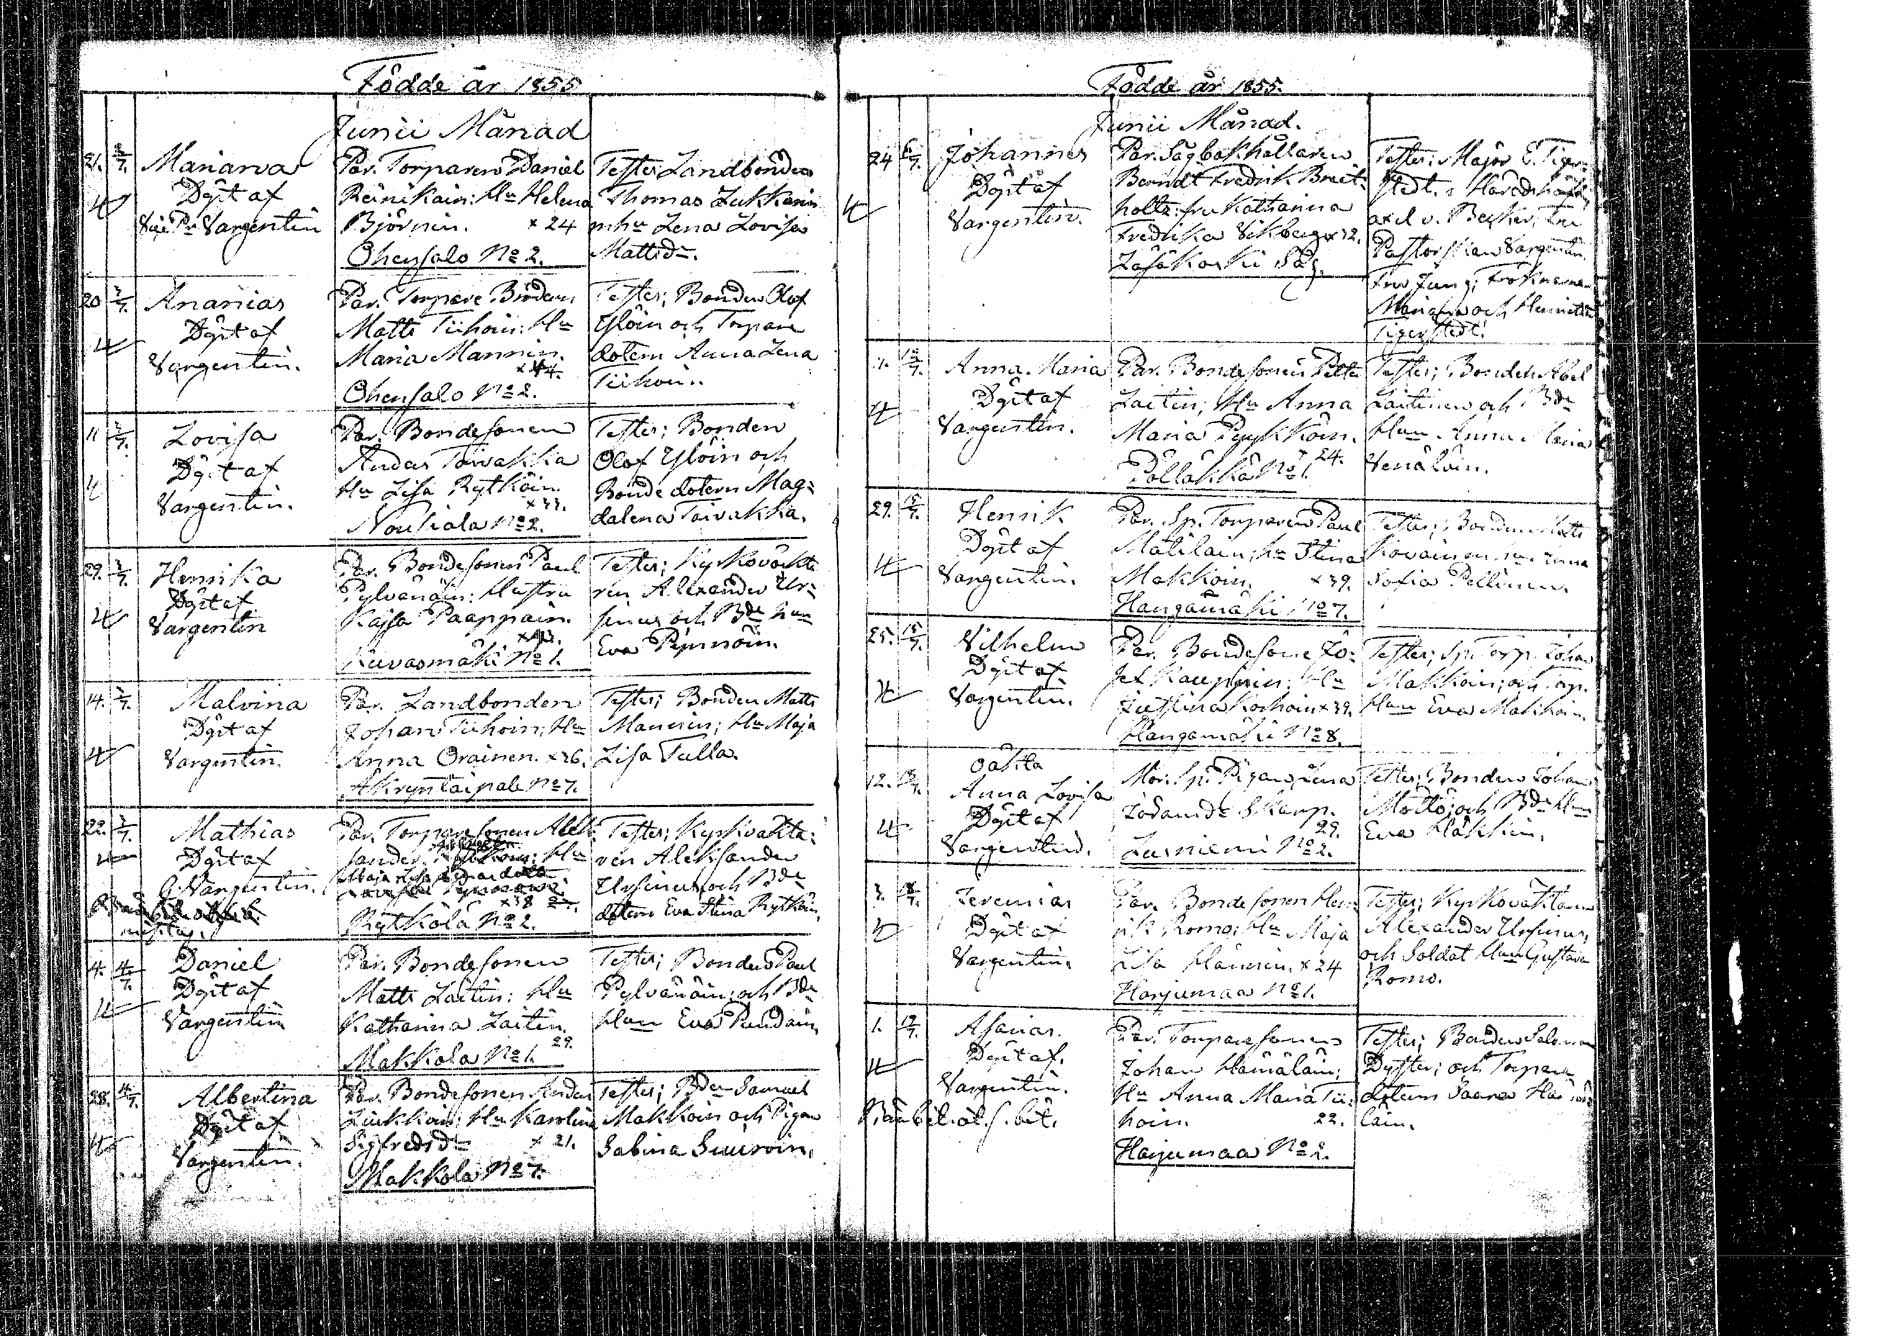 Födde år 1855
Junii Månad
21. 2/7. Mariana
Döpt af
Vice P: Vargentin
Par. Torparen Daniel
Reinikain: Hu Helena
Björnin. x 24
Ohensalo No 2.
Testes Landbonden
Thomas Lukkarin
m hu Lena Lovisa
Mattsdr.
20 2/7. Ananias
Döpt af
Vargentin.
Par. Torpare Brodern
Matts Tiihoin: Hu
Maria Mannin.
x 44.
Ohensalo No 2.
Testes; Bonden Olof
Ylöin och Torpare
dotern Anna Lena
Tiihoin.
11 2/7. Lovisa
Döpt af
Vargentin.
Par. Bondesonen
Anders Toivakka
Hu Lisa Rytköin.
x 33.
Nousiala No 2.
Testes; Bonden
Olof Ylöin och
Bonde dotern Mag:
dalena Toivakka.
29. 3/7. Henrika
Döpt af
Vargentin
Par. Bondesonen Paul
Pylvänäin: Hustru
Kajsa Paappain.
x 43.
Kuvasmäki No 1.
Testes; Kyrkoväkta
ren Alexander Ur:
sinus och Bde hun
Eva Pynnöin.
14. 3/7. Malvina
Döpt af
Vargentin.
Par. Landbonden
Johan Tiihoin; Hu
Anna Orainen. x 26.
Akryntaipale No 7.
Testes; Bonden Matts
Mannin; Hu Maja
Lisa Tulla.
22. 3/7. Mathias
Döpt af
G: Vargentin.
Par. Torparesonen Alek:
sander
x 38
Rytkölä No 2.
Testes; Kyrkväkta:
ren Aleksander
Ursinus och Bde
dotern Eva Stina Rytköin.
4. 4/7. Daniel
Döpt af
Vargentin
Par. Bondesonen
Matts Laitin: Hu
Katharina Laitin.
29.
Makkola No 1.
Testes; Bonden Paul
Pylvänäin; och Bde
Hun Eva Pundain
28. 4/7. Albertina
Döpt af
Vargentin.
Par. Bondesonen Anders
Liukkoin: Hu Karolina
Sigfredsdr x 21.
Makkola No 7.
Testes; Bden Samuel
Makkoin och Pigan
Sabina Suuroin.
Födde år 1855.
Junii Månad.
24 6/7. Johannes
Döpt af
Vargentin.
Par. Sågbokhållaren
Berndt Fredrik Breit:
holtz: fru Katharina
Fredrika Vikberg x 32.
Läsäkoski Såg.
Testes: Major E. Tiger:
stedt. Häradshöfd.
axel v. Becker, Fru
Pastorskan Vargentin.
Fru Jung; Fröknarna
Maria och Henriette
Tigerstedt.
7. 10/7. Anna Maria
Döpt af
Vargentin.
Par. Bondesonen Petter
Laitin; Hu Anna
Maria Pyykköin.
24.
Pölläkkä No 1.
Testes; Bonden Abel
Laitinen och Bde
Hun Anna Maria
Venäläin.
29. 15/7. Henrik
Döpt af
Vargentin.
Par. Sp. Torparen Paul
Matilain; hu Stina
Makkoin. x 39.
Hangamäki No 7.
Testes; Bonden Matts
Kovainen hu Anna
Sofia Pellinen.
25. 15/7. Vilhelm
Döpt af
Vargentin.
Par. Bondesone Jo:
sef Kauppin; Hu
Justina Korhoin x 39.
Hangamäki No 8.
Testes; Sp. Torp. Johan
Makkoin; och Torp.
Hun Eva Makkoin.
oäkta
12. 15/7. Anna Lovisa
Döpt af
Vargentin.
Mor. Sp: Pigan Lena
Jodamdr Skarp.
29.
Lusniemi No 2.
Testes; Bonden Johan
Möttö; och Bde Hun
Eva Häkkin.
3. 18/7. Jeremias
Döpt af
Vargentin.
Par. Bondesonen Hen:
rik Romo; Hu Maja
Lisa Hännin. x 24
Harjumaa No 1.
Testes; Kyrkoväktaren
Alexander Ursinus,
och Soldat Hun Gustava
Romo.
1. 19/7. Asarias.
Döpt af.
Vargentin.
Par. Torparesonen
Johan Hämäläin;
Hu Anna Maria Tii:
hoin. 22.
Harjumaa No 2.
Testes; Bonden Salomon
Dyster; och Torpare
dotern Saara Hämä
läin.